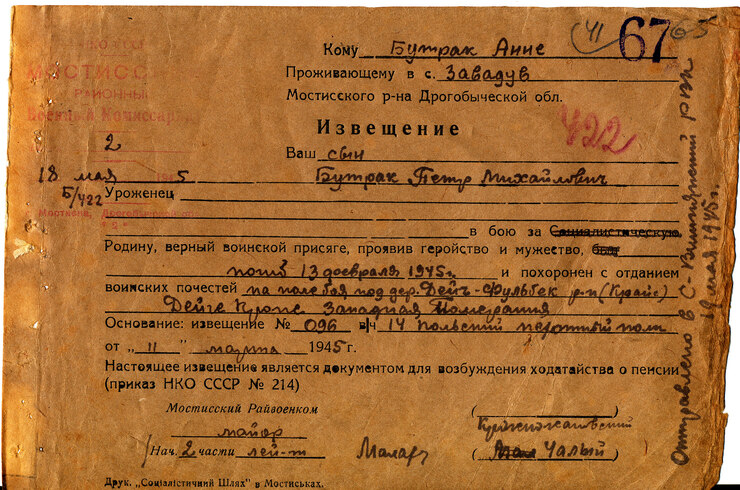 Кому Бутрак Анне (41 67 65
Проживающему в с. Завадув
Мостисского р-на Дрогобыческой обл.
НКО
МОСТИССК
РАЙОННЫЙ
Военный Комиссар
Извещение
422
2
Ваш сын
18 мая 5
Бутрак Петр Михайлович
Б/422
Уроженец
г. Мостиска, Дрогобычской
в бою за Социалистическую
Родину, верный воинской присяге, проявив геройство и мужество, был
погиб 13 февраля 1945 г. и похоронен с отданием
воинских почестей на поле боя под дер. Дейч-Фульбек р-н (Крайс)
Дейче Кроне Западная Померания
Основание: извещение № 096 в/ч 14 польский пехотный полк
от „11" марта 1945 г.
Настоящее извещение является документом для возбуждения ходатайства о пенсии
(приказ НКО СССР № 214)
Мостисский Райвоенком
майор (Кржижановский)
Нач. 2 части лей-т (Чалый)
Друк. „Соціалістичний Шлях" в Мостиськах.
Отправлено в С- рвк
19 мая 1945 г.